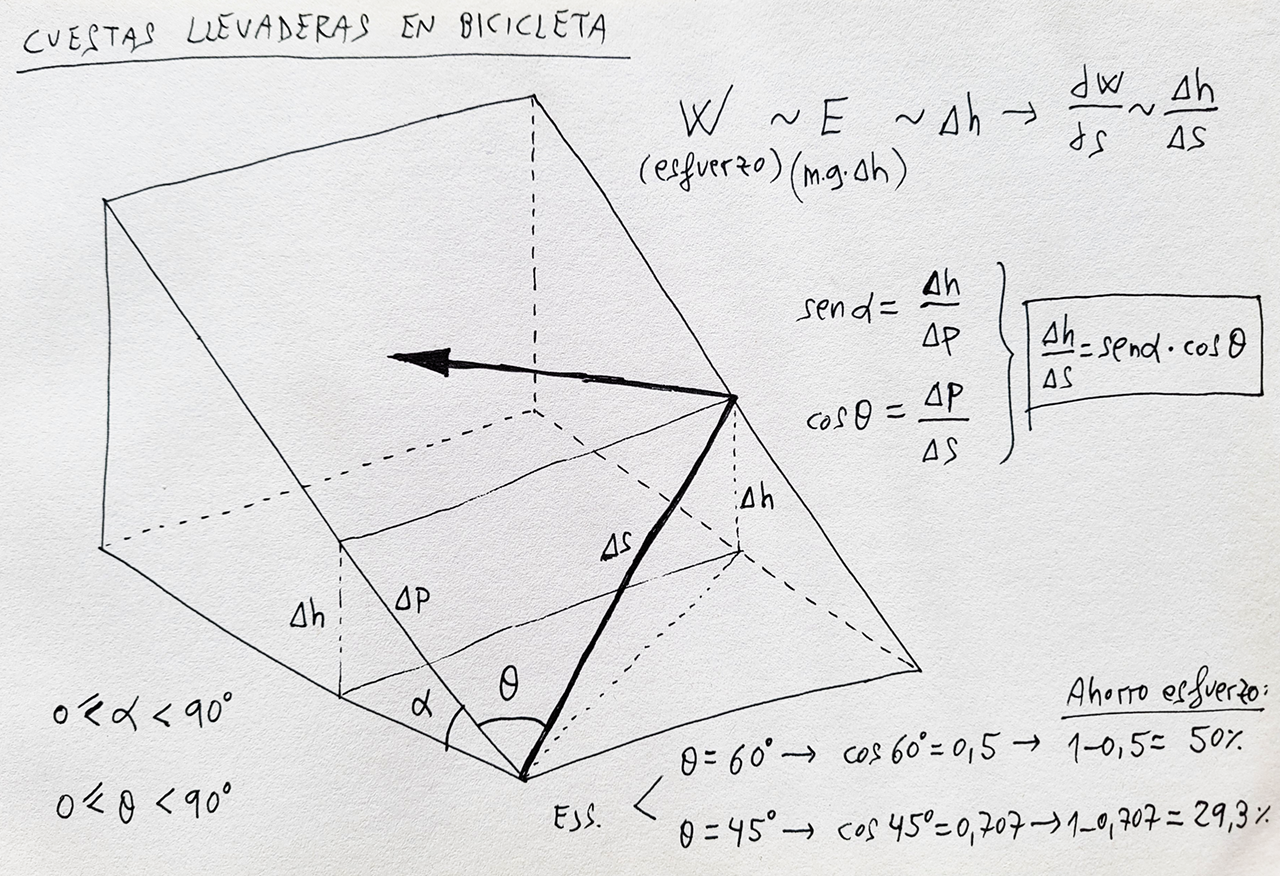 CUESTAS LLEVADERAS EN BICICLETA
W ~ E ~ Δh → dW/ds ~ Δh/Δs
(esfuerzo) (m.g.Δh)
sen α = Δh/Δp
cos θ = Δp/Δs
Δh/Δs = sen α · cos θ
Δh
Δs
Δh
Δp
α
θ
0 ≤ α < 90°
0 ≤ θ < 90°
Ahorro esfuerzo:
EJS.
θ = 60° → cos 60° = 0,5 → 1-0,5 = 50%
θ = 45° → cos 45° = 0,707 → 1-0,707 = 29,3%